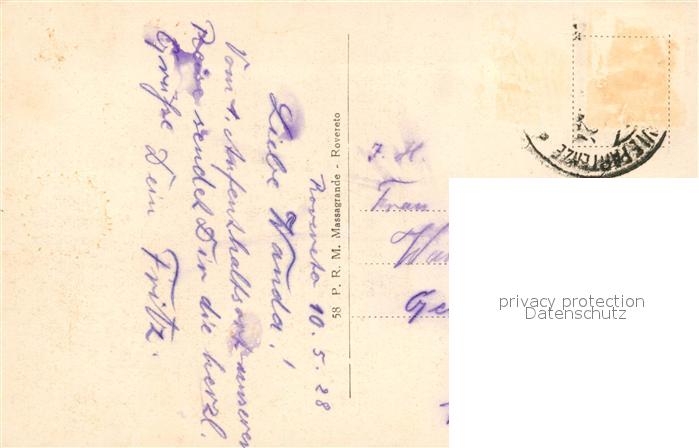 Rovereto 10.5.28
Liebe Wanda!
Vom 1. Aufenthaltsort unserer
Reise sendet Dir die herzl.
Grüße Dein Fritz.
58 P. R. M. Massagrande - Rovereto
I. H.
Frau
Wan
Ge
PARTENZE
privacy protection
Datenschutz